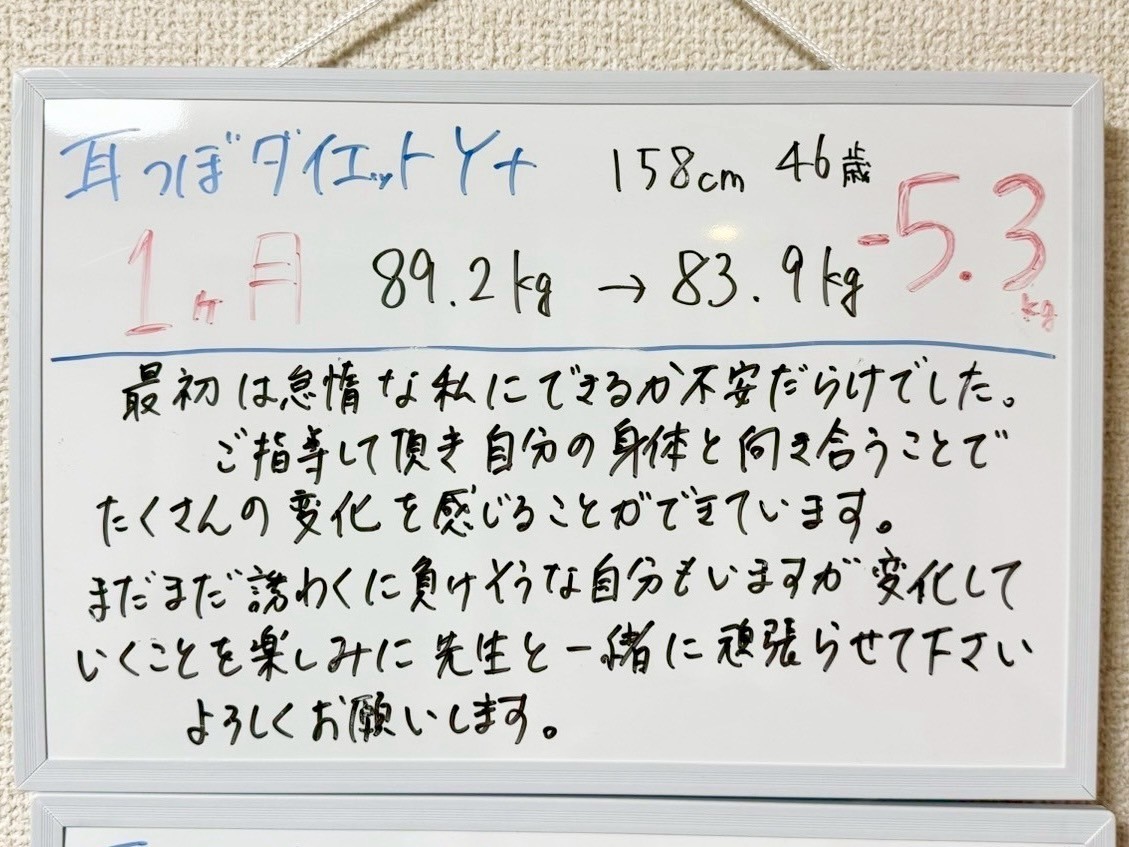 耳つぼダイエットY+ 158cm 46歳
1ヶ月 89.2kg → 83.9kg -5.3kg
最初は怠惰な私にできるか不安だらけでした。
ご指導して頂き自分の身体と向き合うことで
たくさんの変化を感じることができています。
まだまだ誘わくに負けそうな自分もいますが変化して
いくことを楽しみに先生と一緒に頑張らせて下さい
よろしくお願いします。